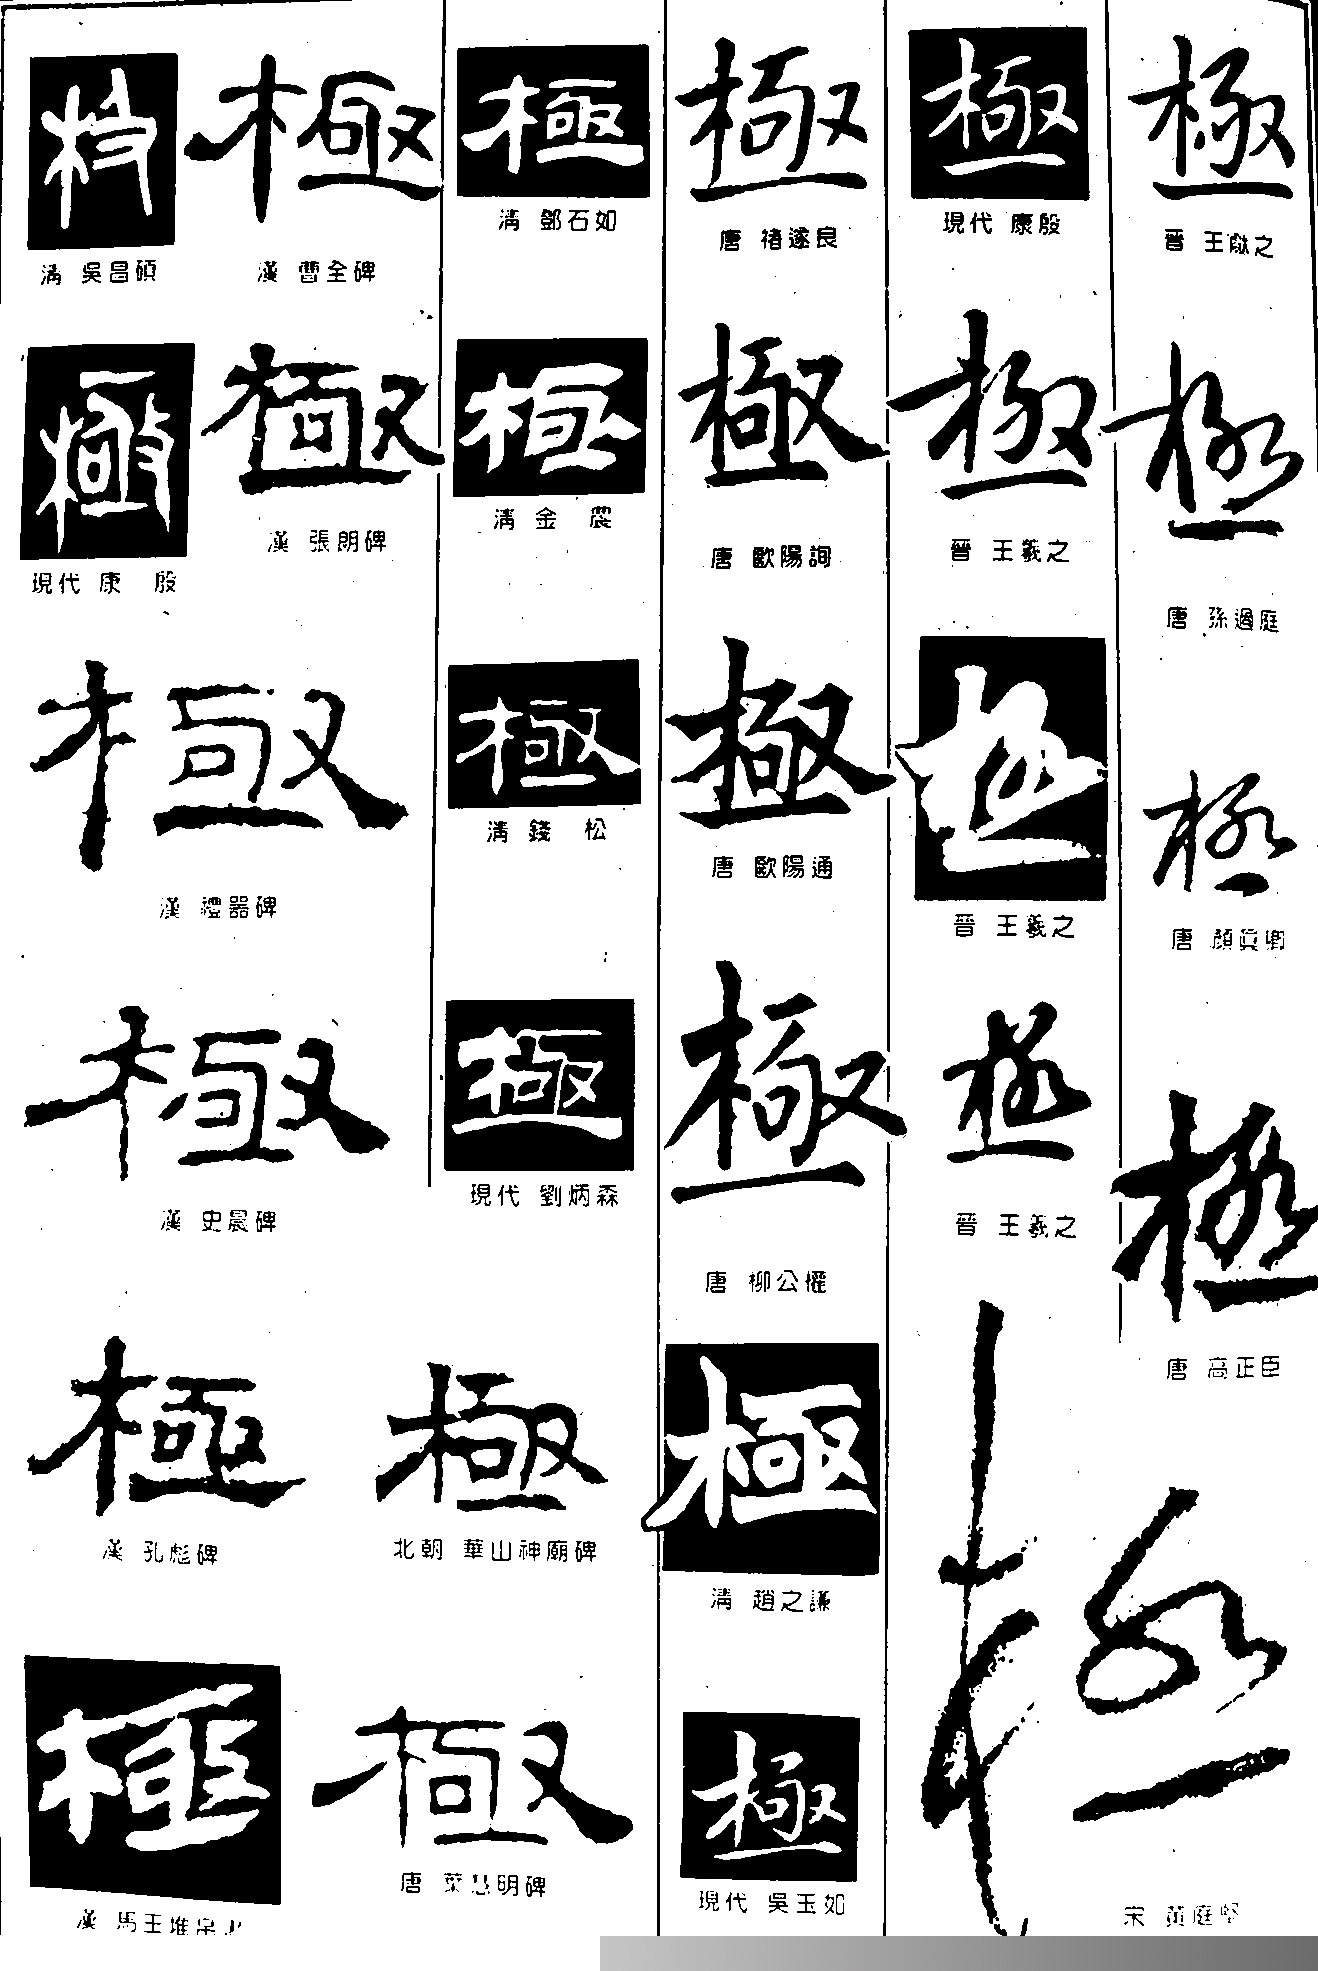 極
清 吳昌碩
極
漢 曹全碑
極
現代 康 殷
極
漢 張朗碑
極
漢 禮器碑
極
漢 史晨碑
極
漢 孔彪碑
極
北朝 華山神廟碑
極
漢 馬王堆帛
極
唐 葉慧明碑
極
清 鄧石如
極
清 金 農
極
清 錢 松
極
現代 劉炳森
極
唐 褚遂良
極
唐 歐陽詢
極
唐 歐陽通
極
唐 柳公權
極
清 趙之謙
極
現代 吳玉如
極
現代 康殷
極
晉 王羲之
極
晉 王羲之
極
晉 王羲之
極
晉 王獻之
極
唐 孫過庭
極
唐 顏真卿
極
唐 高正臣
極
宋 黃庭堅